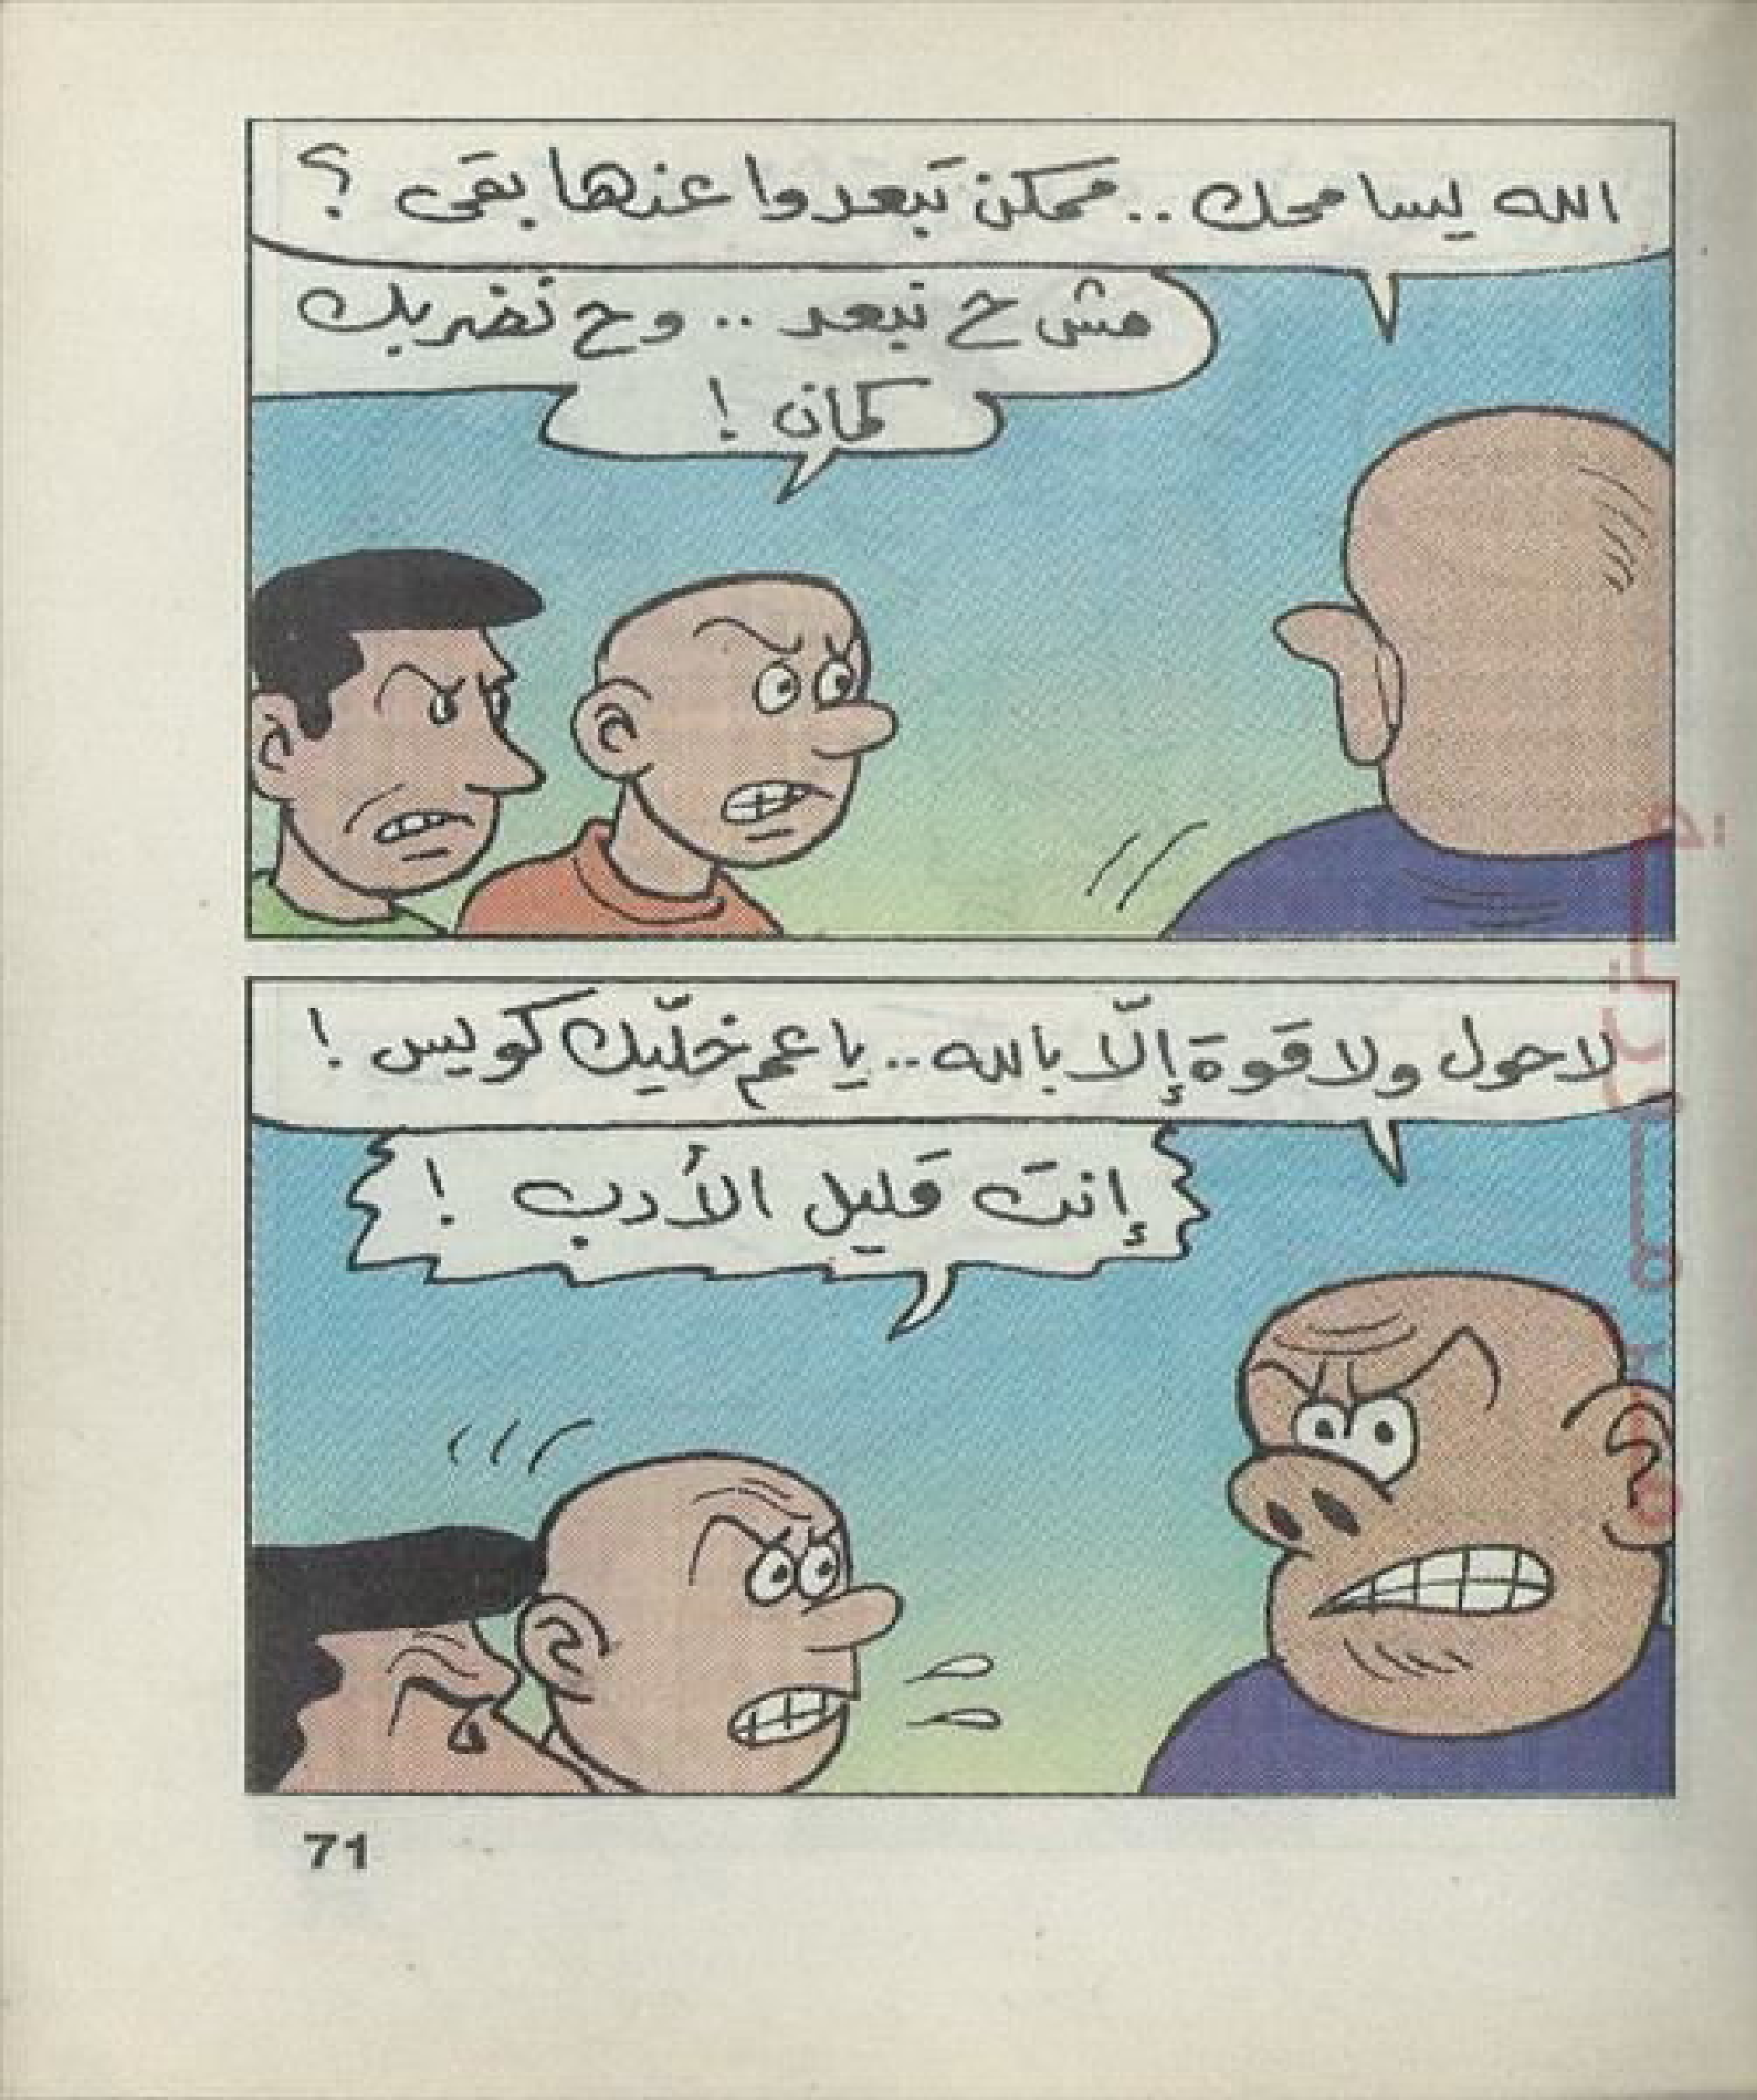 الله يسامحك .. ممكن تبعدوا عنها بقى ؟
مش ح نبعد .. وح نضربك
كمان !
لا حول ولا قوة إلّا بالله .. يا عم خلّيك كويس !
إنتَ قليل الأدب !
71